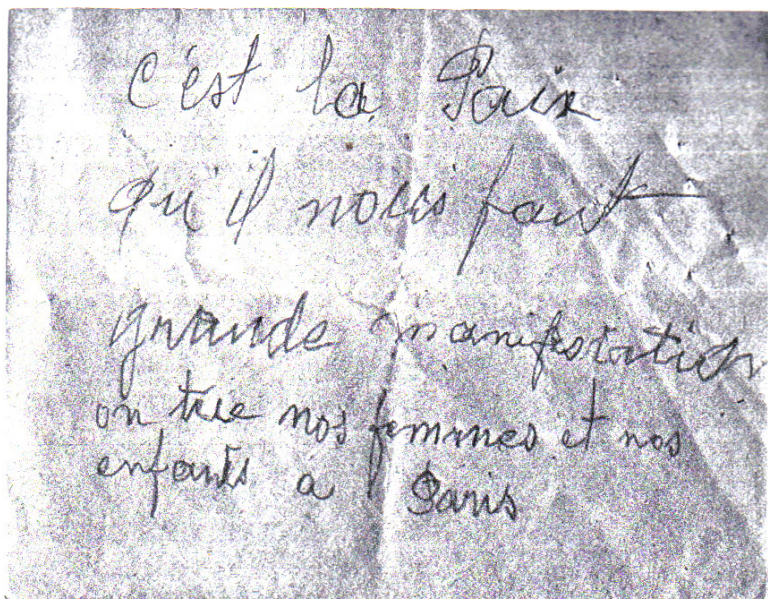 c'est la Paix
qu'il nous faut
grande manifestation
on tue nos femmes et nos
enfants à Paris